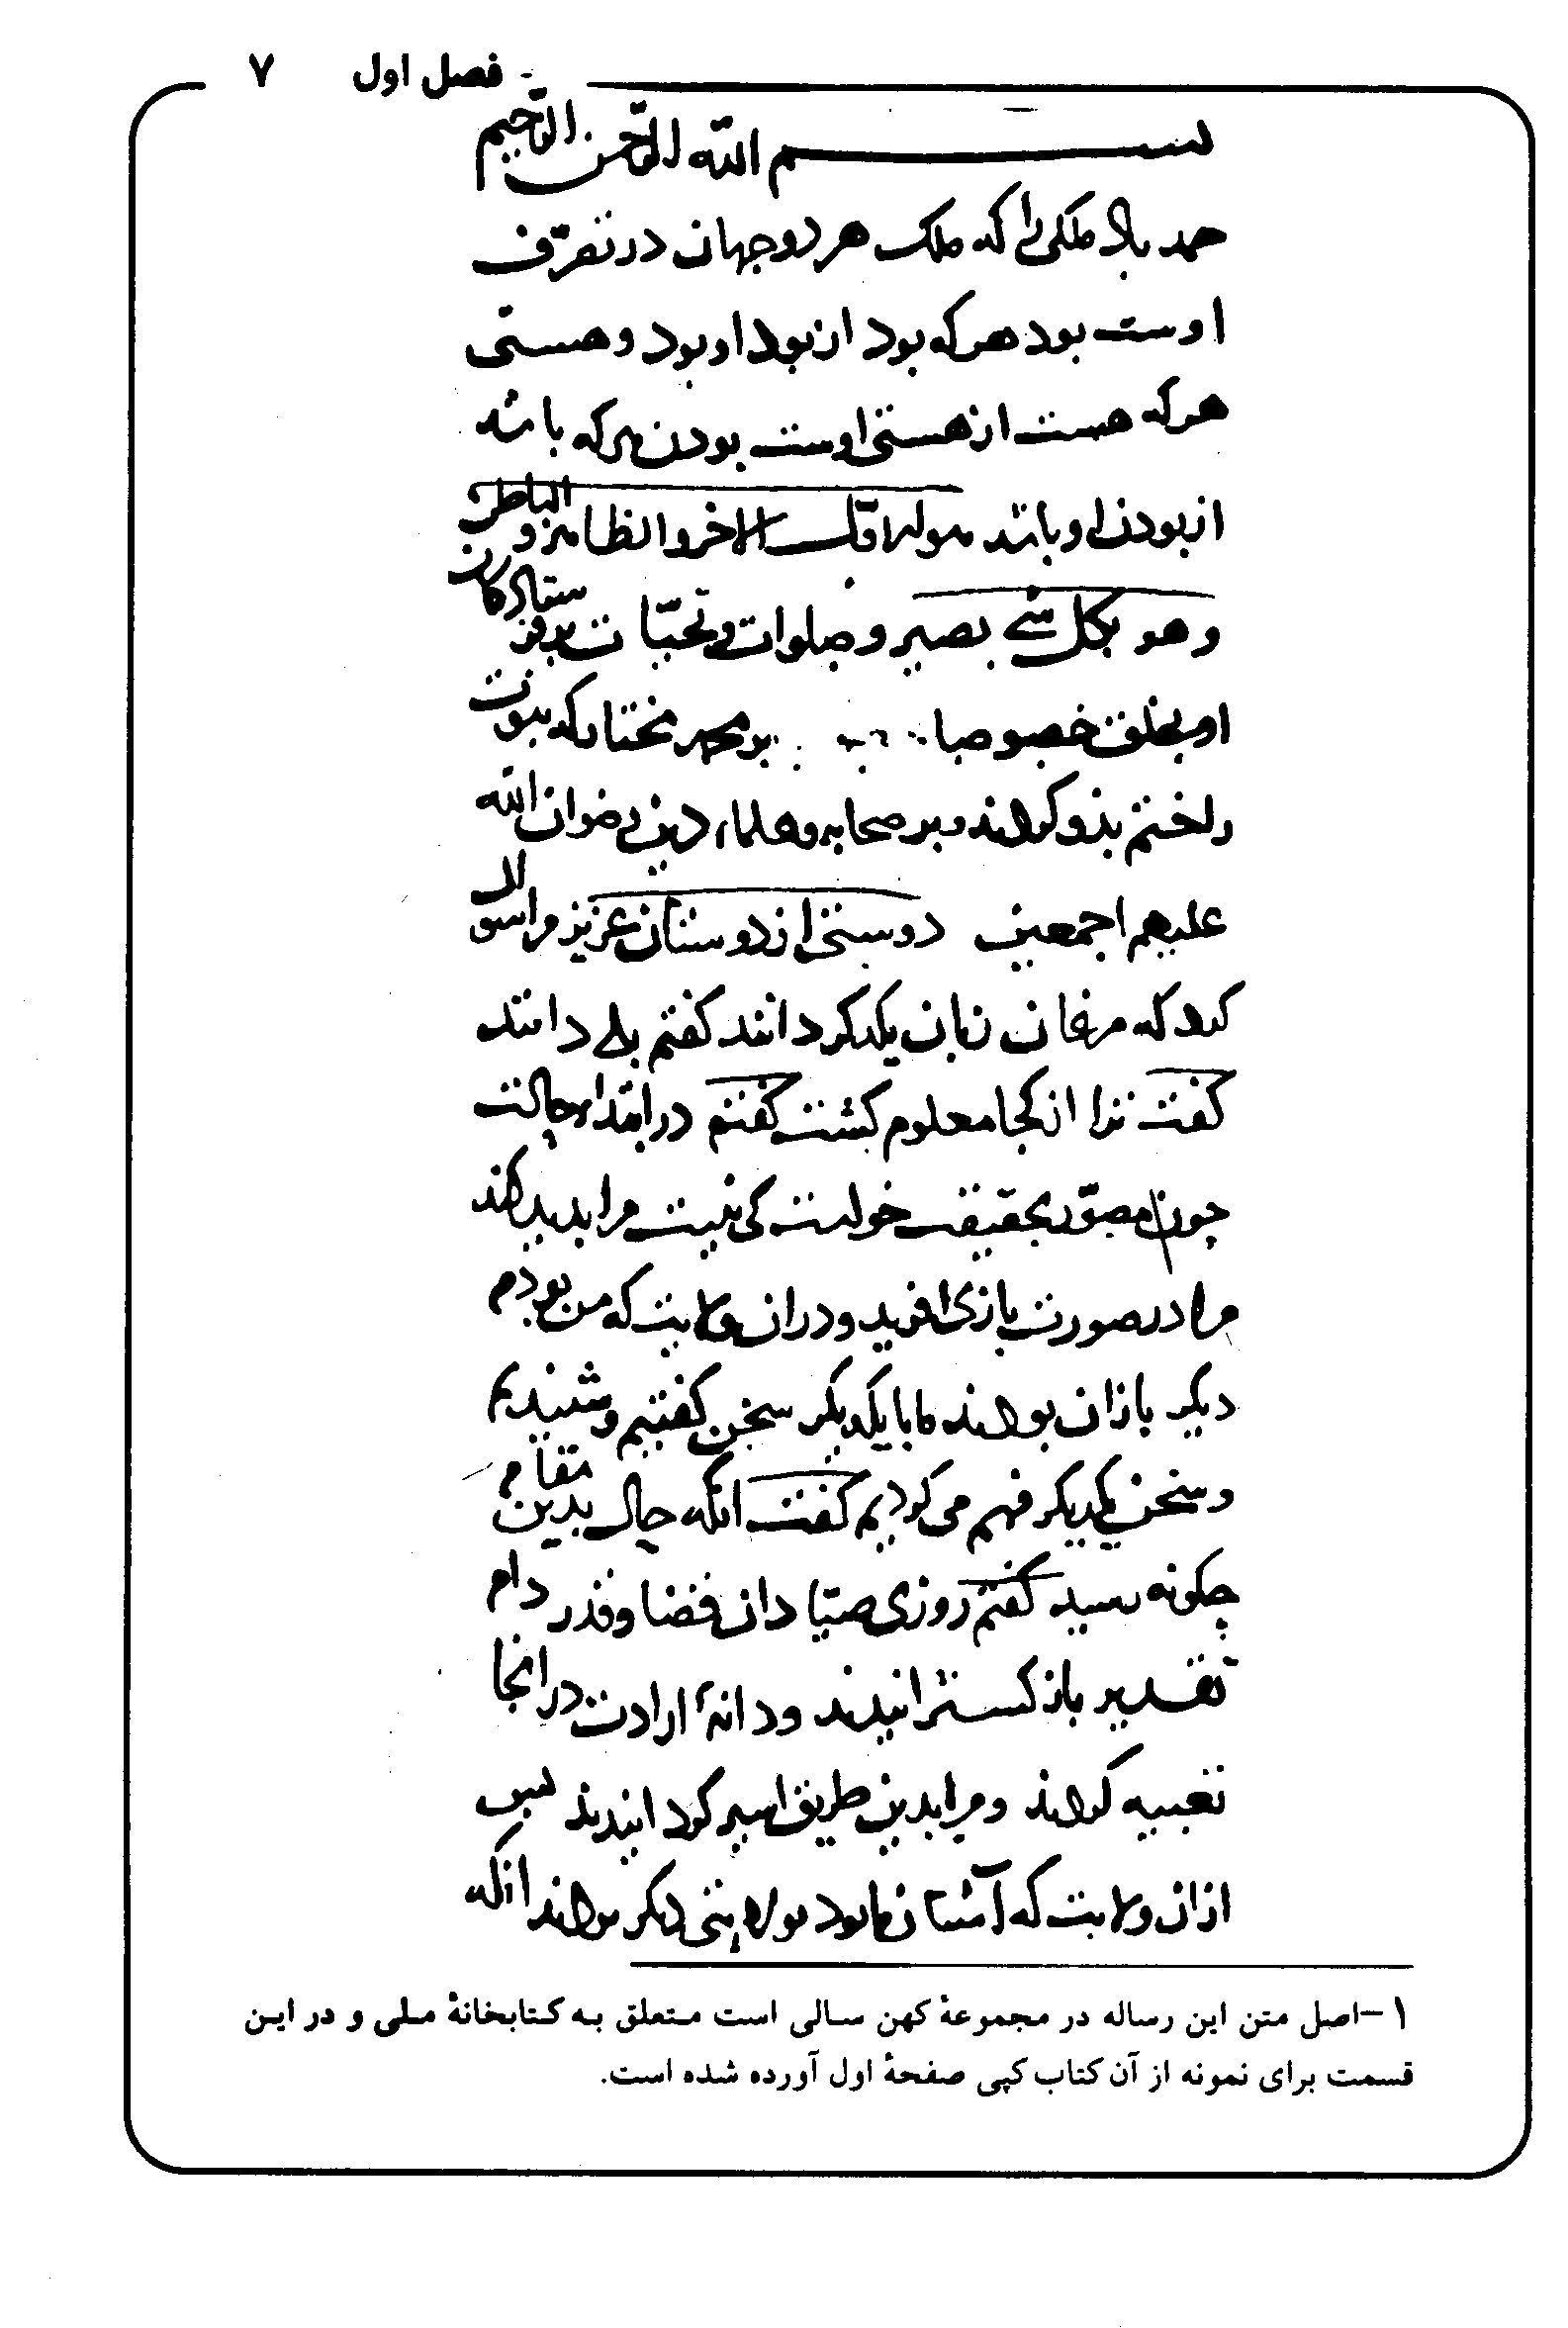 فصل اول ۷
بسم الله الرحمن الرحیم
حمد باد ملکی را که ملک هر دو جهان در تصرّف
اوست بود هر که بود از بود او بود و هستی
هر که هست از هستی اوست بودن هر که باشد
از بودن او باشد هو الاوّل و الاخر و الظاهر و الباطن
و هو بکل شیء بصیر و صلوات و تحیّات بر فرستادکان
او بخلق خصوصا بر محمد مختار که نبوت
را ختم بذو کردند و بر صحابه و علماء دین رضوان الله
علیهم اجمعین دوستی از دوستان عزیز مرا سوال
کرد که مرغان زبان یکدکر دانند کفتم بلی دانند
کفت ترا از کجا معلوم کشت کفتم در ابتداء حالت
چون مصوّر بحقیقت خواست کی نیت مرا بدید کند
مرا در صورت بازی افرید و در ان ولایت که من بودم
دیکر بازان بودند ما با یکدیکر سخن کفتیم و شنیدیم
و سخن یکدیکر فهم می کردیم کفت انکه حال بدین مقام
چکونه رسید کفتم روزی صیّادان قضا و قدر دام
تقدیر باز کسترانیدند و دانۀ ارادت در انجا
تعبیه کردند و مرا بدین طریق اسیر کردانیدند پس
از ان ولایت که آشیان ما بود بولایتی دیکر بردند انکه
۱–اصل متن این رساله در مجموعۀ کهن سالی است متعلق به کتابخانۀ ملی و در این
قسمت برای نمونه از آن کتاب کپی صفحۀ اول آورده شده است.